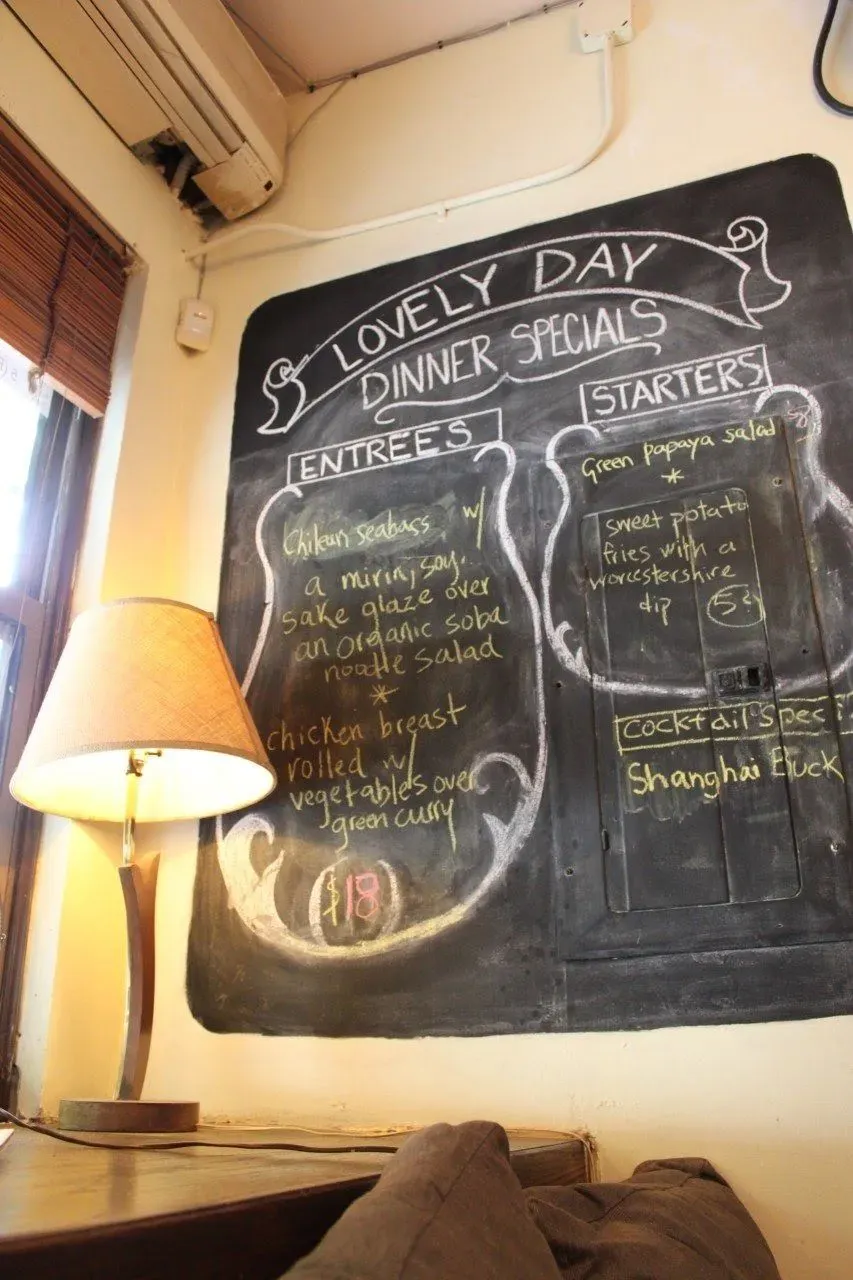 LOVELY DAY
DINNER SPECIALS
ENTREES
Chilean seabass w/
a mirin, soy,
sake glaze over
an organic soba
noodle salad
*
chicken breast
rolled w/
vegetables over
green curry
$18
STARTERS
Green papaya salad
*
sweet potato
fries with a
worcestershire
dip
Cocktail Spec
Shanghai Buck